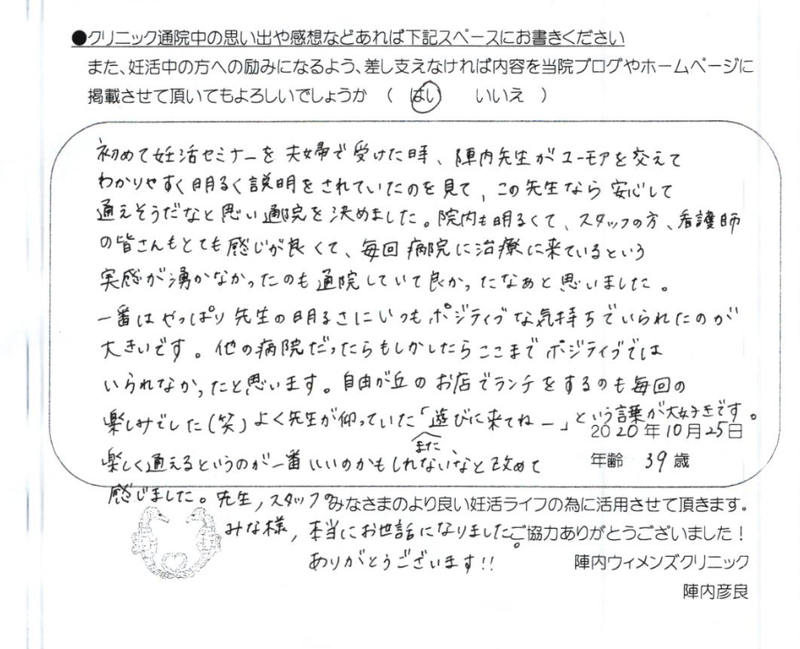 ●クリニック通院中の思い出や感想などあれば下記スペースにお書きください
また、妊活中の方への励みになるよう、差し支えなければ内容を当院ブログやホームページに
掲載させて頂いてもよろしいでしょうか （ はい いいえ ）
初めて妊活セミナーを夫婦で受けた時、陣内先生がユーモアを交えて
わかりやすく明るく説明をされていたのを見て、この先生なら安心して
通えそうだなと思い通院を決めました。院内も明るくて、スタッフの方、看護師
の皆さんもとても感じが良くて、毎回病院に治療に来ているという
実感が湧かなかったのも通院していて良かったなあと思いました。
一番はやっぱり先生の明るさにいつもポジティブな気持ちでいられたのが
大きいです。他の病院だったらもしかしたらここまでポジティブでは
いられなかったと思います。自由が丘のお店でランチをするのも毎回の
楽しみでした(笑)よく先生が仰っていた「また遊びに来てねー」という言葉が大好きです。
2020年10月25日
楽しく通えるというのが一番いいのかもしれないなと改めて
年齢 39歳
感じました。先生,スタッフの
みな様,本当にお世話になりました。
ありがとうございます!!
みなさまのより良い妊活ライフの為に活用させて頂きます。
ご協力ありがとうございました！
陣内ウィメンズクリニック
陣内彦良